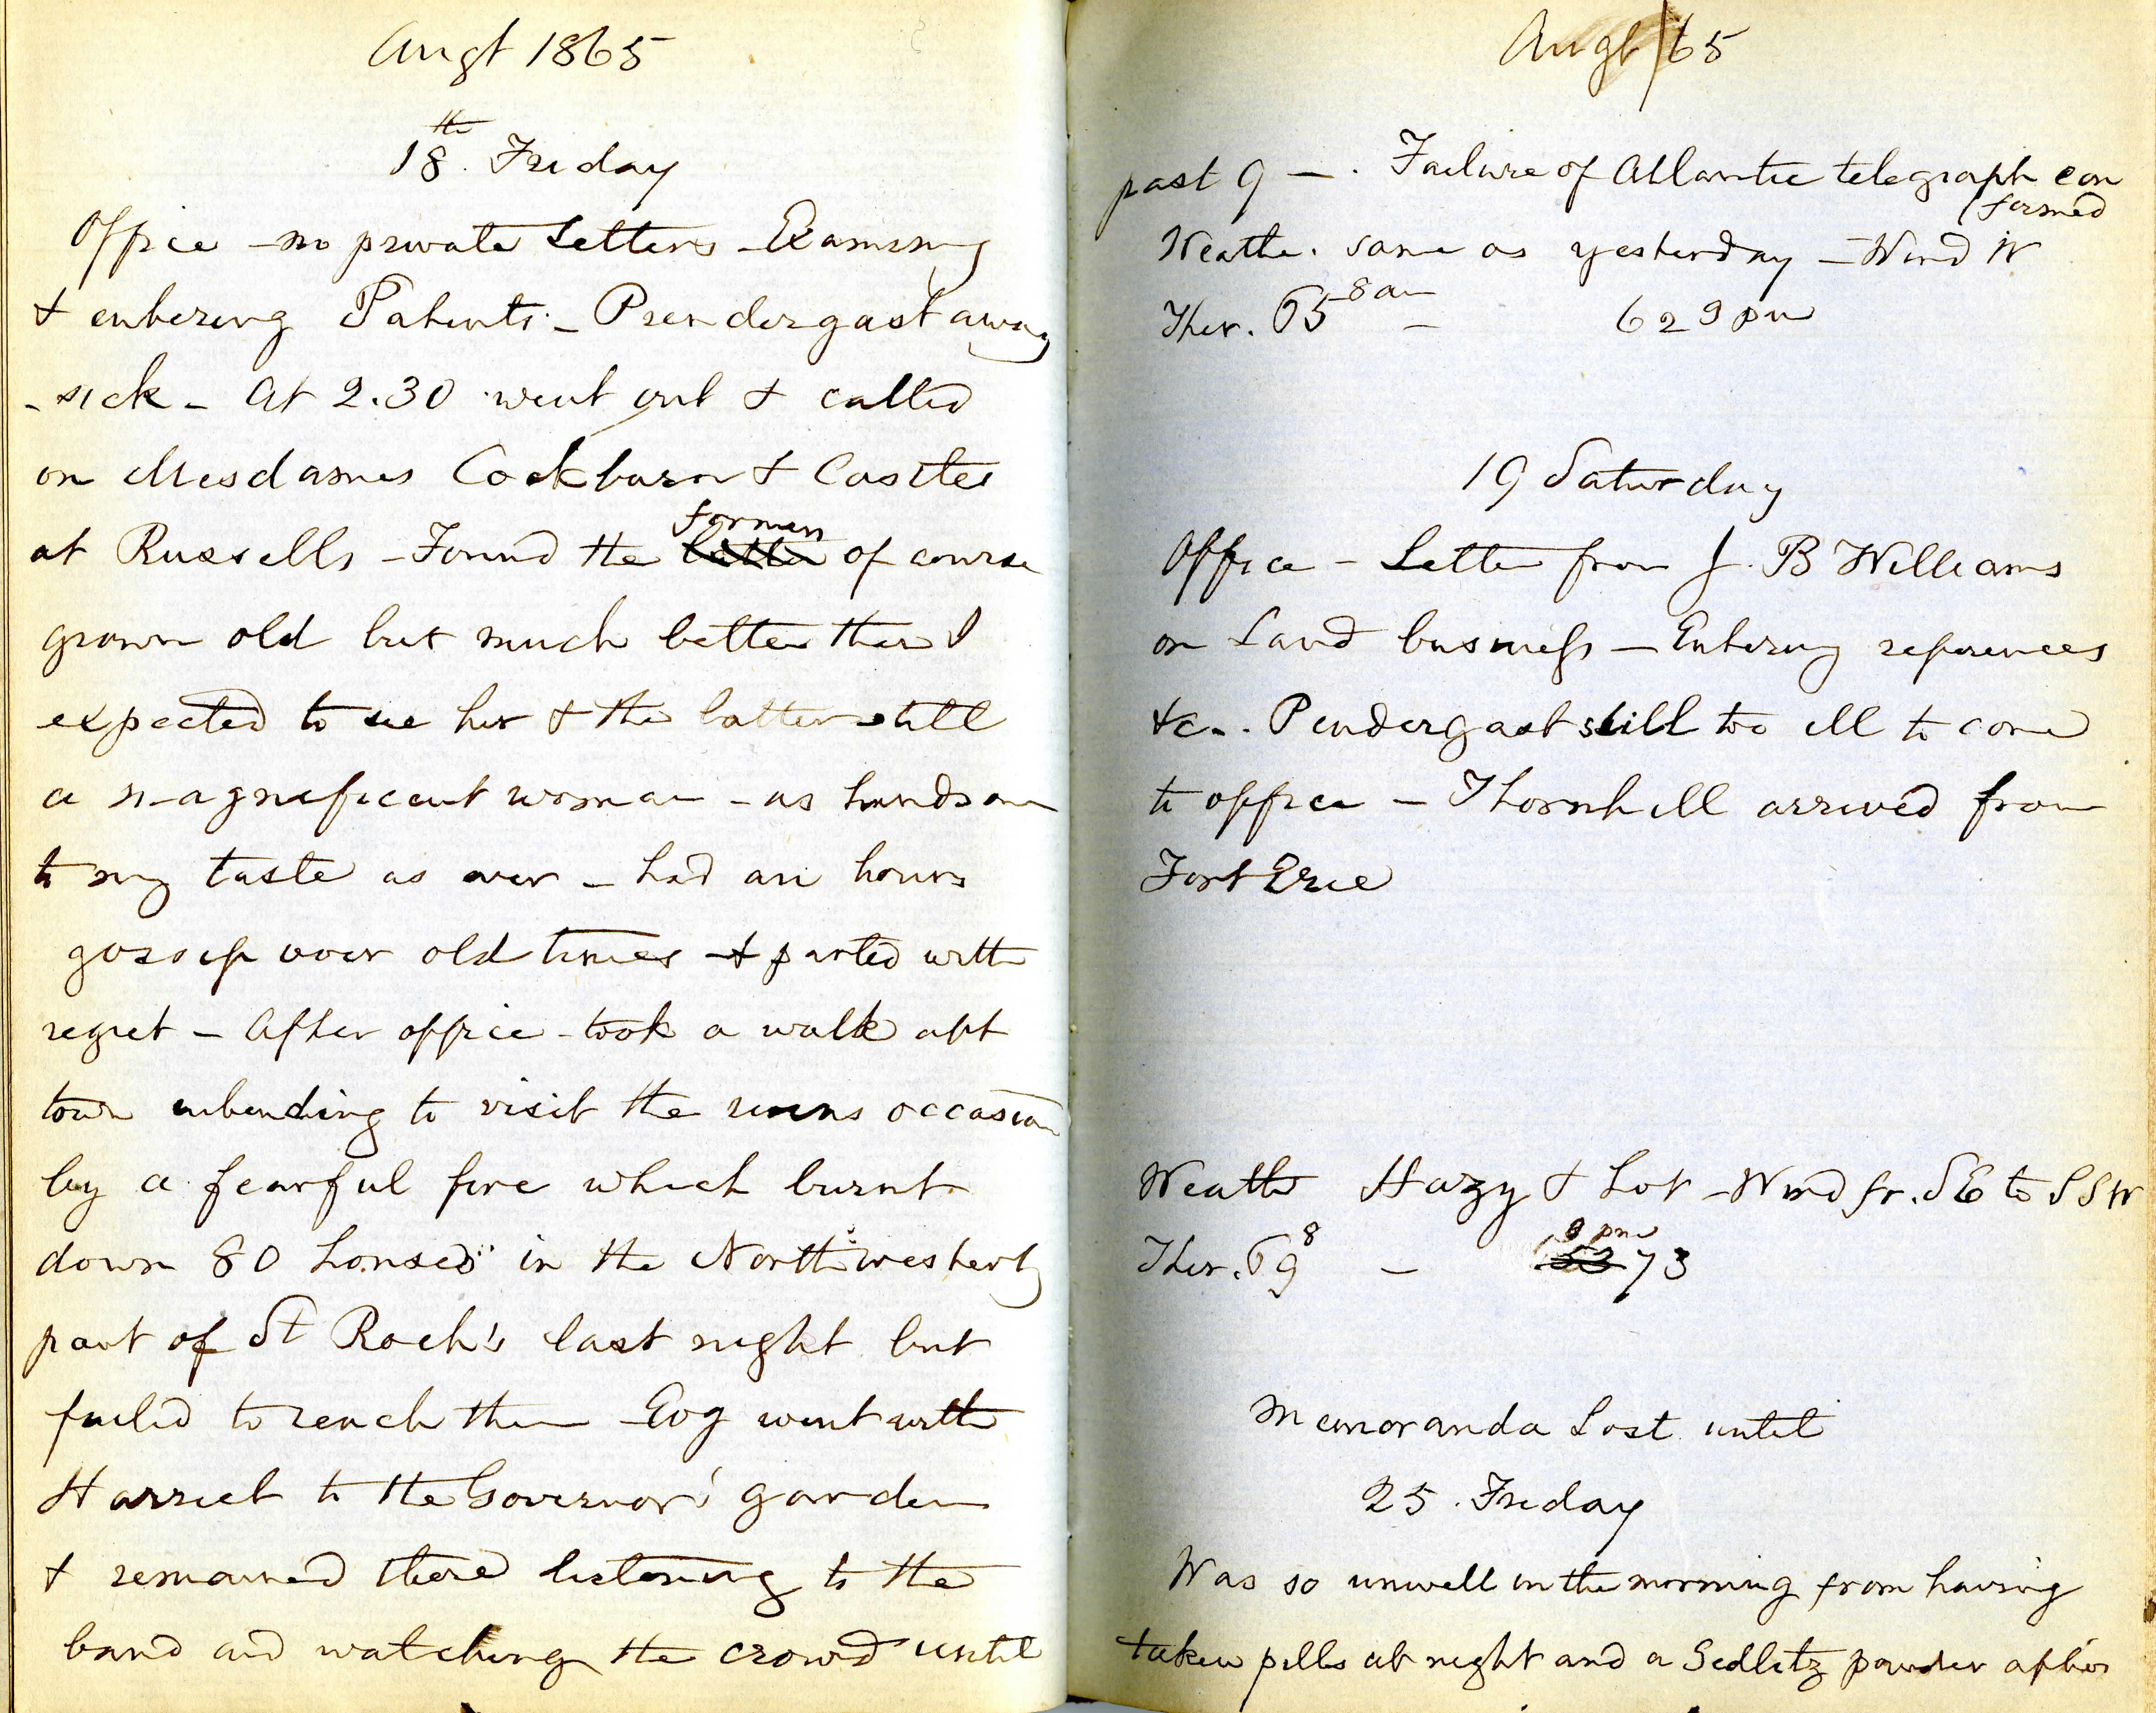 Augt 1865
18th. Friday
Office - no private Letters - Examining
& entering Patents - Prendergast away
- sick - At 2.30 went out & called
on Mesdames Cockburn & Castle
at Russells - Found the former of course
grown old but much better than I
expected to see her & the latter still
a magnificent woman - as handsome
to my taste as ever - had an hours
gossip over old times & parted with
regret - After office - took a walk abt
town intending to visit the ruins occasion
by a fearful fire which burnt
down 80 houses in the North westerly
part of St Roch's last night but
failed to reach them - Eog went with
Harriet to the Governor's garden
& remained there listening to the
band and watching the crowd until
Augt /65
past 9 - . Failure of Atlantic telegraph con
firmed
Weather. same as yesterday - Wind W
Ther. 65 8 am - 62 9 pm
19 Saturday
Office - Letter from J. B Williams
on Land business - Entering references
&c.. Pendergast still too ill to come
to office - Thornhill arrived from
Fort Erie
Weather Hazy & hot - Wind fr. SE to SSW
Ther. 69 8 - pm 73
Memoranda Lost until
25. Friday
Was so unwell in the morning from having
taken pills at night and a Sedlitz powder after